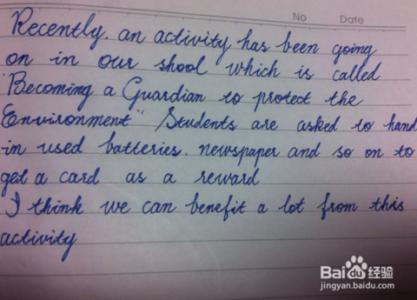 No Date
Recently. an activity has been going
on in our shool which is called
"Becoming a Guardian to protect the
Environment" Students are asked to hand
in used batteries. newspaper and so on to
get a card as a reward
I think we can benefit a lot from this
activity
Bai du 经验
jingyan.baidu.com